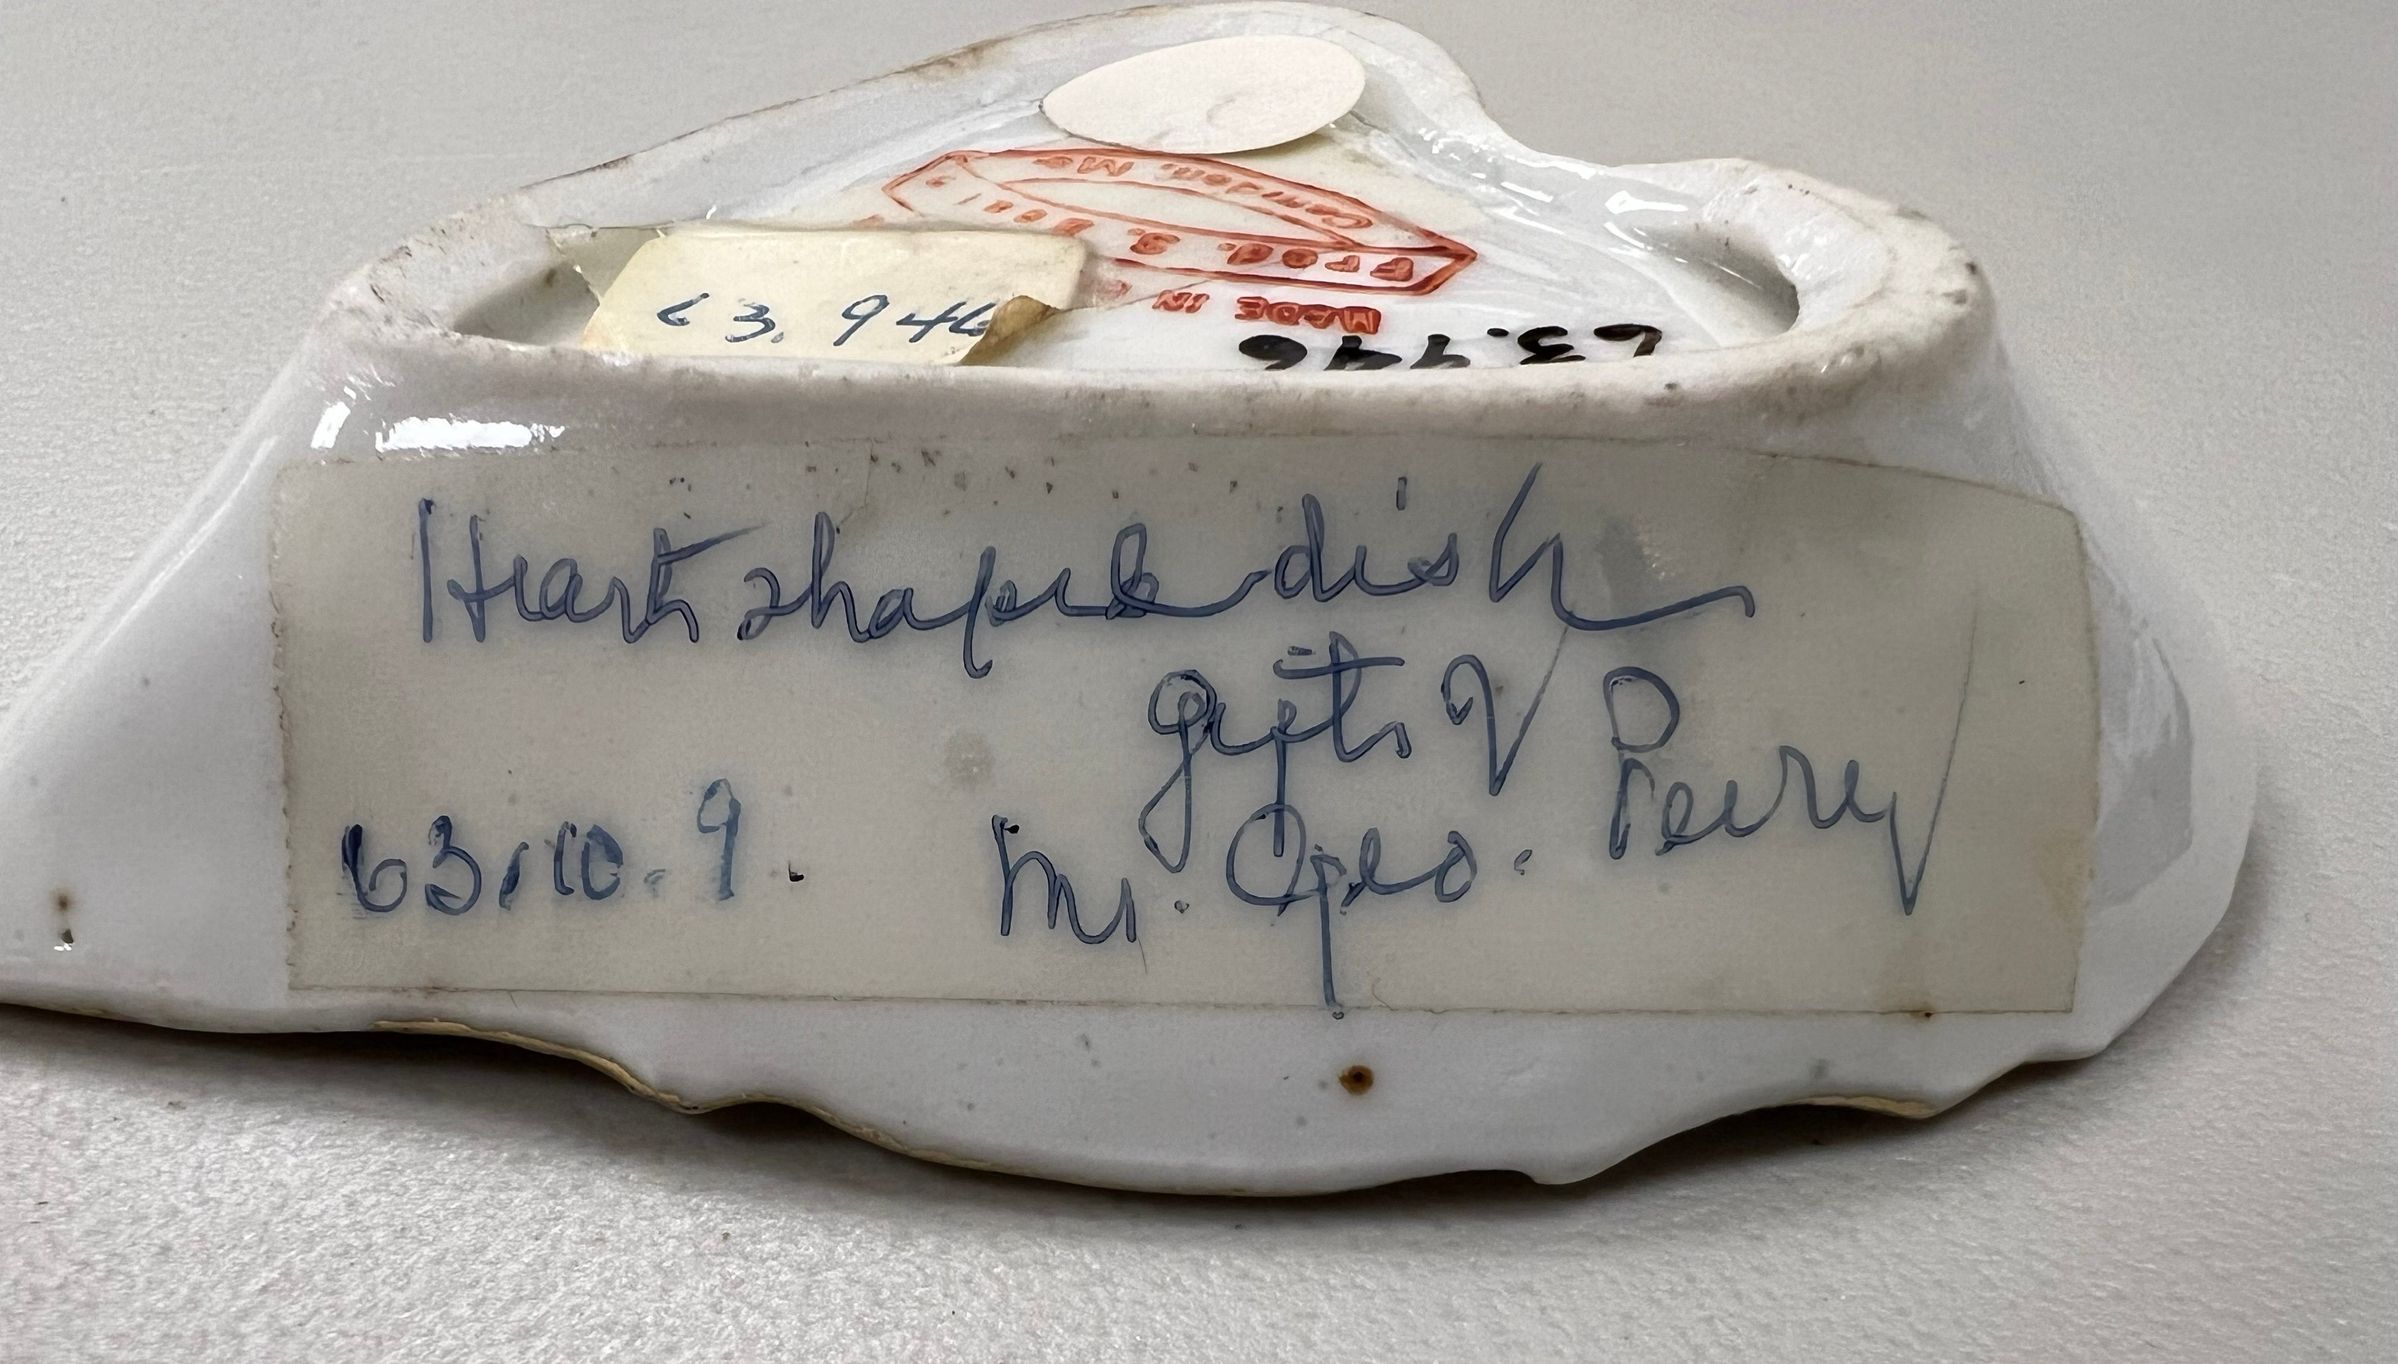 Camden, Me
Fred. S.
MADE IN
63.946
63.946
Heart shaped dish
gift of
Mr. Geo. Perry
63.10.9.